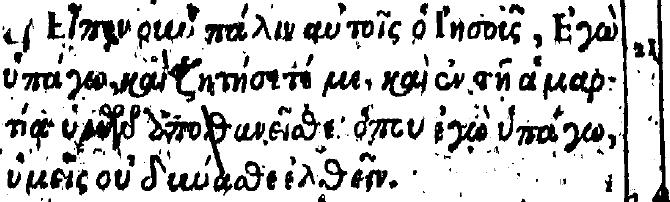 Εἶπεν οὖν πάλιν αὐτοῖς ὁ Ἰησοῦς, Ἐγὼ 21
ὑπάγω, καὶ ζητήσετέ με, καὶ ἐν τῇ ἁμαρ-
τίᾳ ὑμῶν ἀποθανεῖσθε· ὅπου ἐγὼ ὑπάγω,
ὑμεῖς οὐ δύνασθε ἐλθεῖν.